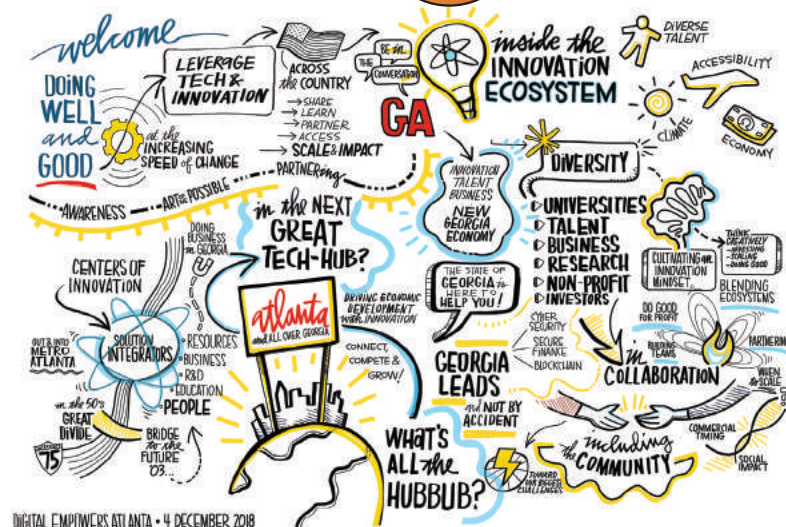 welcome
DOING
WELL
and
GOOD
at the
INCREASING
SPEED of CHANGE
LEVERAGE
TECH &
INNOVATION
ACROSS
the COUNTRY
→ SHARE
→ LEARN
→ PARTNER
→ ACCESS
→ SCALE & IMPACT
BE in
THE
CONVERSATION
GA
inside the
INNOVATION
ECOSYSTEM
DIVERSE
TALENT
ACCESSIBILITY
CLIMATE
ECONOMY
AWARENESS
ART of the POSSIBLE
PARTNERing
INNOVATION
TALENT
BUSINESS
NEW
GEORGIA
ECONOMY
DIVERSITY
UNIVERSITIES
TALENT
BUSINESS
RESEARCH
NON-PROFIT
INVESTORS
CULTIVATING an
INNOVATION
MINDSET
THINK
CREATIVELY
- INVESTING
- SCALING
- DOING GOOD
BLENDING
ECOSYSTEMS
in the NEXT
GREAT
TECH-HUB?
DOING
BUSINESS
in GEORGIA
CENTERS OF
INNOVATION
SOLUTION
INTEGRATORS
OUT & INTO
METRO
ATLANTA
• RESOURCES
• BUSINESS
• R&D
• EDUCATION
• PEOPLE
in the 50's
GREAT
DIVIDE
75
BRIDGE
to the
FUTURE
'03...
atlanta
and ALL OVER GEORGIA
DRIVING ECONOMIC
DEVELOPMENT
with INNOVATION
CONNECT,
COMPETE &
GROW!
THE STATE OF
GEORGIA is
HERE TO
HELP YOU!
GEORGIA
LEADS
and NOT BY
ACCIDENT
CYBER
SECURITY
SECURE
FINANCE
BLOCKCHAIN
WHAT'S
ALL the
HUBBUB?
TOWARD
OUR BIGGEST
CHALLENGES
DO GOOD
FOR PROFIT
BUILDING
TEAMS
PARTNERIN
WHEN
to SCALE
in
COLLABORATION
including
the COMMUNITY
COMMERCIAL
TIMING
SOCIAL
IMPACT
DIGITAL EMPOWERS ATLANTA • 4 DECEMBER 2018